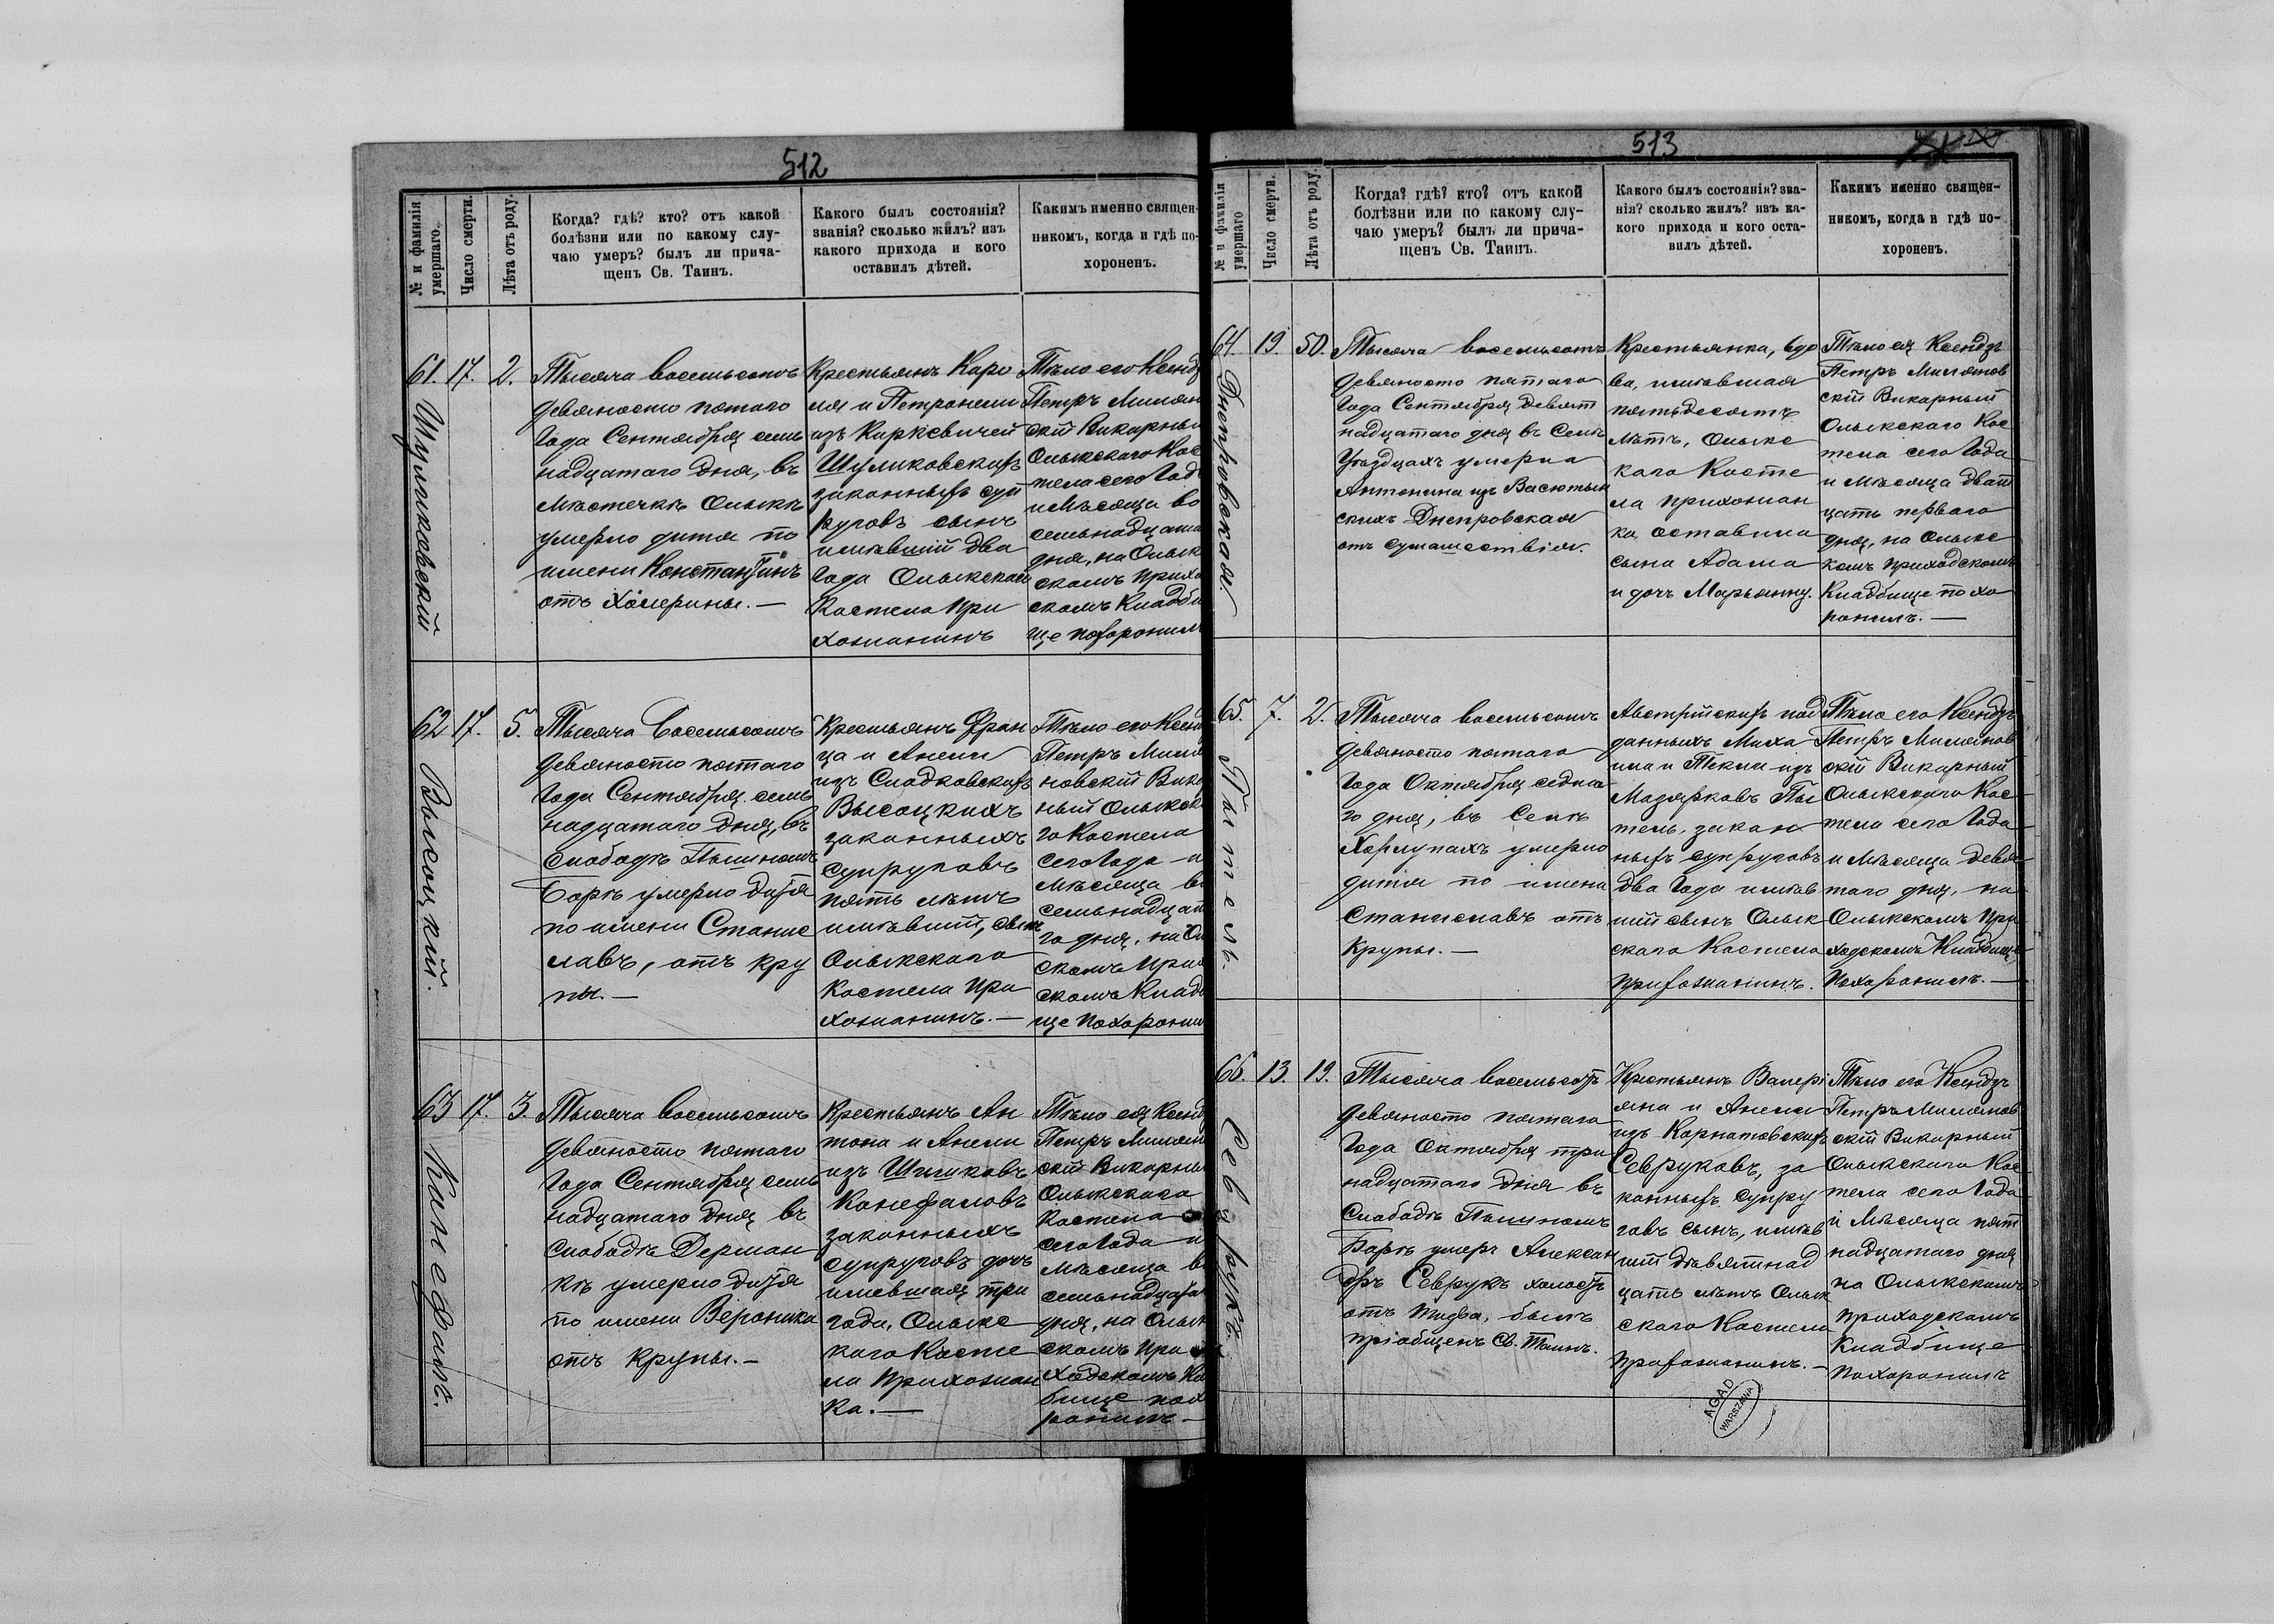 512
№ и фамилія умершаго.
Число смерти.
Лѣта отъ роду.
Когда? гдѣ? кто? отъ какой
болѣзни или по какому слу-
чаю умеръ? былъ ли прича-
щенъ Св. Таинъ.
Какого былъ состоянія?
званія? сколько жилъ? изъ
какого прихода и кого
оставилъ дѣтей.
Какимъ именно священ-
никомъ, когда и гдѣ по-
хороненъ.
61.
Шуликовскій
17.
2.
Тысяча восемьсотъ
девяносто пятаго
года Сентября семь
надцатаго дня, въ
мѣстечкѣ Олыкѣ
умерло дитя по
имени Константинъ
отъ холерины. —
Крестьянъ Каро
ля и Петронели
изъ Киркевичей
Шуликовскихъ
законныхъ суп
руговъ сынъ
имѣвшій два
года Олыкскаго
Костела При
хожанинъ
Тѣло его Ксендз
Петръ Милян
скій Викарны
Олыкскаго Кос
тела сего Год
и Мѣсяца во
семьнадцата
дня, на Олык
скомъ прихо
скомъ Кладби
ще похоронилъ
62
Высоцкій.
17.
5.
Тысяча Восемьсотъ
девяносто пятаго
года Сентября семь
надцатаго дня, въ
слободѣ Пышномъ
Боркѣ умерло дитя
по имени Станис
лавъ, отъ кру
пы. —
Крестьянъ Фран
ца и Анели
изъ Сладковскихъ
Высоцкихъ
законныхъ
супруговъ
пять лѣтъ
имѣвшій, сынъ
Олыкскаго
Костела При
хожанинъ. —
Тѣло его Ксенд
Петръ Миля
новскій Вика
ный Олыкска
го Костела
сего Года и
Мѣсяца во
семьнадцат
го дня, на Ол
скомъ Прих
скомъ Кладб
ще похорони
63
Канефалъ.
17.
3.
Тысяча восемьсотъ
девяносто пятаго
года Сентября семь
надцатаго дня въ
слободѣ Держан
кѣ умерло дитя
по имени Вероника
отъ крупы. —
Крестьянъ Ан
тона и Анели
изъ Шчиковъ
Канефаловъ
законныхъ
супруговъ дочь
имевшая три
года, Олыкс
каго Косте
ла Прихожан
ка. —
Тѣло ея Ксенд
Петръ Милян
скій Викарны
Олыкскаго
Костела
сего Года и
Мѣсяца во
семьнадцата
дня, на Олык
скомъ при
ходскомъ Кл
бище пох
ронилъ —
513
№ и фамилія умершаго
Число смерти.
Лѣта отъ роду.
Когда? гдѣ? кто? отъ какой
болѣзни или по какому слу-
чаю умеръ? былъ ли прича-
щенъ Св. Таинъ.
Какого былъ состоянія? зва-
нія? сколько жилъ? изъ ка-
кого прихода и кого оста-
вилъ дѣтей.
Какимъ именно священ-
никомъ, когда и гдѣ по-
хороненъ.
64.
Днепровская.
19.
50.
Тысяча восемьсотъ
девяносто пятаго
Года Сентября девят
надцатаго дня въ Селѣ
Уѣздцахъ умерла
Антонина изъ Васютын
скихъ Днепровская
отъ сумашествія.
Крестьянка, вдо
ва, имѣвшая
пятьдесятъ
лѣтъ, Олыкс
каго Косте
ла прихожан
ка, оставила
сына Адама
и дочь Марьянну.
Тѣло ея Ксендзъ
Петръ Милянов
скій Викарный
Олыкскаго Кос
тела сего Года
и Мѣсяца двад
цать перваго
дня, на Олыкс
комъ приходскомъ
Кладбище похо
ронилъ. —
65.
Пытель.
7.
2.
Тысяча восемьсотъ
девяносто пятаго
Года Октября седма
го дня, въ Селѣ
Хорлупахъ умерло
дитя по имени
Станиславъ отъ
Крупы. —
Австрійскихъ под
данныхъ Миха
ила и Теклы изъ
Мазярковъ Пы
тель, закон
ныхъ супруговъ
два Года имѣв
шій сынъ Олык
скаго Костела
прихожанинъ.
Тѣло его Ксендзъ
Петръ Милянов
скій Викарный
Олыкскаго Кос
тела сего Года
и Мѣсяца девя
таго дня, на
Олыкскомъ При
ходскомъ Кладбищѣ
Похоронилъ. —
66.
Севрукъ.
13.
19.
Тысяча восемьсотъ
девяносто пятаго
Года Октября три
надцатаго дня въ
Слободѣ Пышномъ
Боркѣ умеръ Алексан
дръ Севрукъ холостъ
отъ тифа, былъ
пріобщенъ Св. Таинъ.
Крестьянъ Валері
яна и Анели
изъ Корнатовскихъ
Севруковъ, за
конныхъ супру
говъ сынъ, имѣв
шій дѣвятнад
цать лѣтъ Олык
скаго Костела
прихожанинъ. —
Тѣло его Ксендзъ
Петръ Милянов
скій Викарный
Олыкскаго Кос
тела сего Года
и Мѣсяца пят
надцатаго дня
на Олыкскомъ
приходскомъ
Кладбище
похоронилъ
AGAD
WARSZAWA